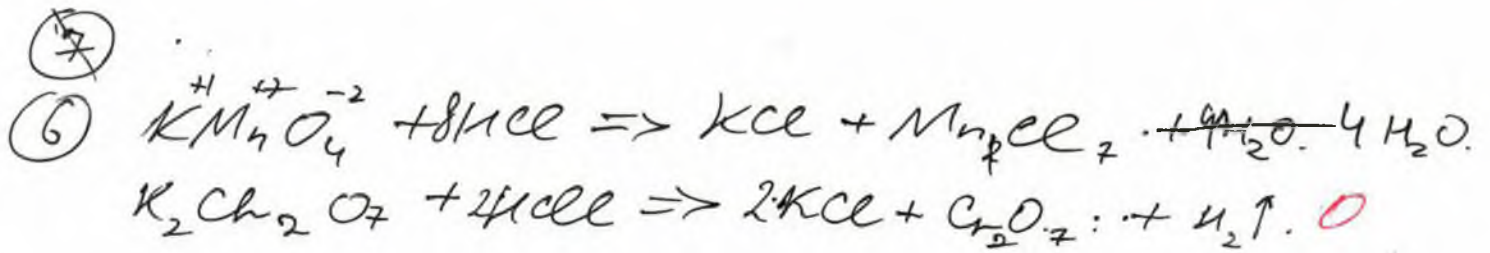 ⑥ K⁺¹Mn⁺⁷O₄⁻² + 8HCl => KCl + MnCl₇ · 4H₂O.
K₂Cr₂O₇ + 2HCl => 2·KCl + Cr₂O₇ : + H₂↑. 0